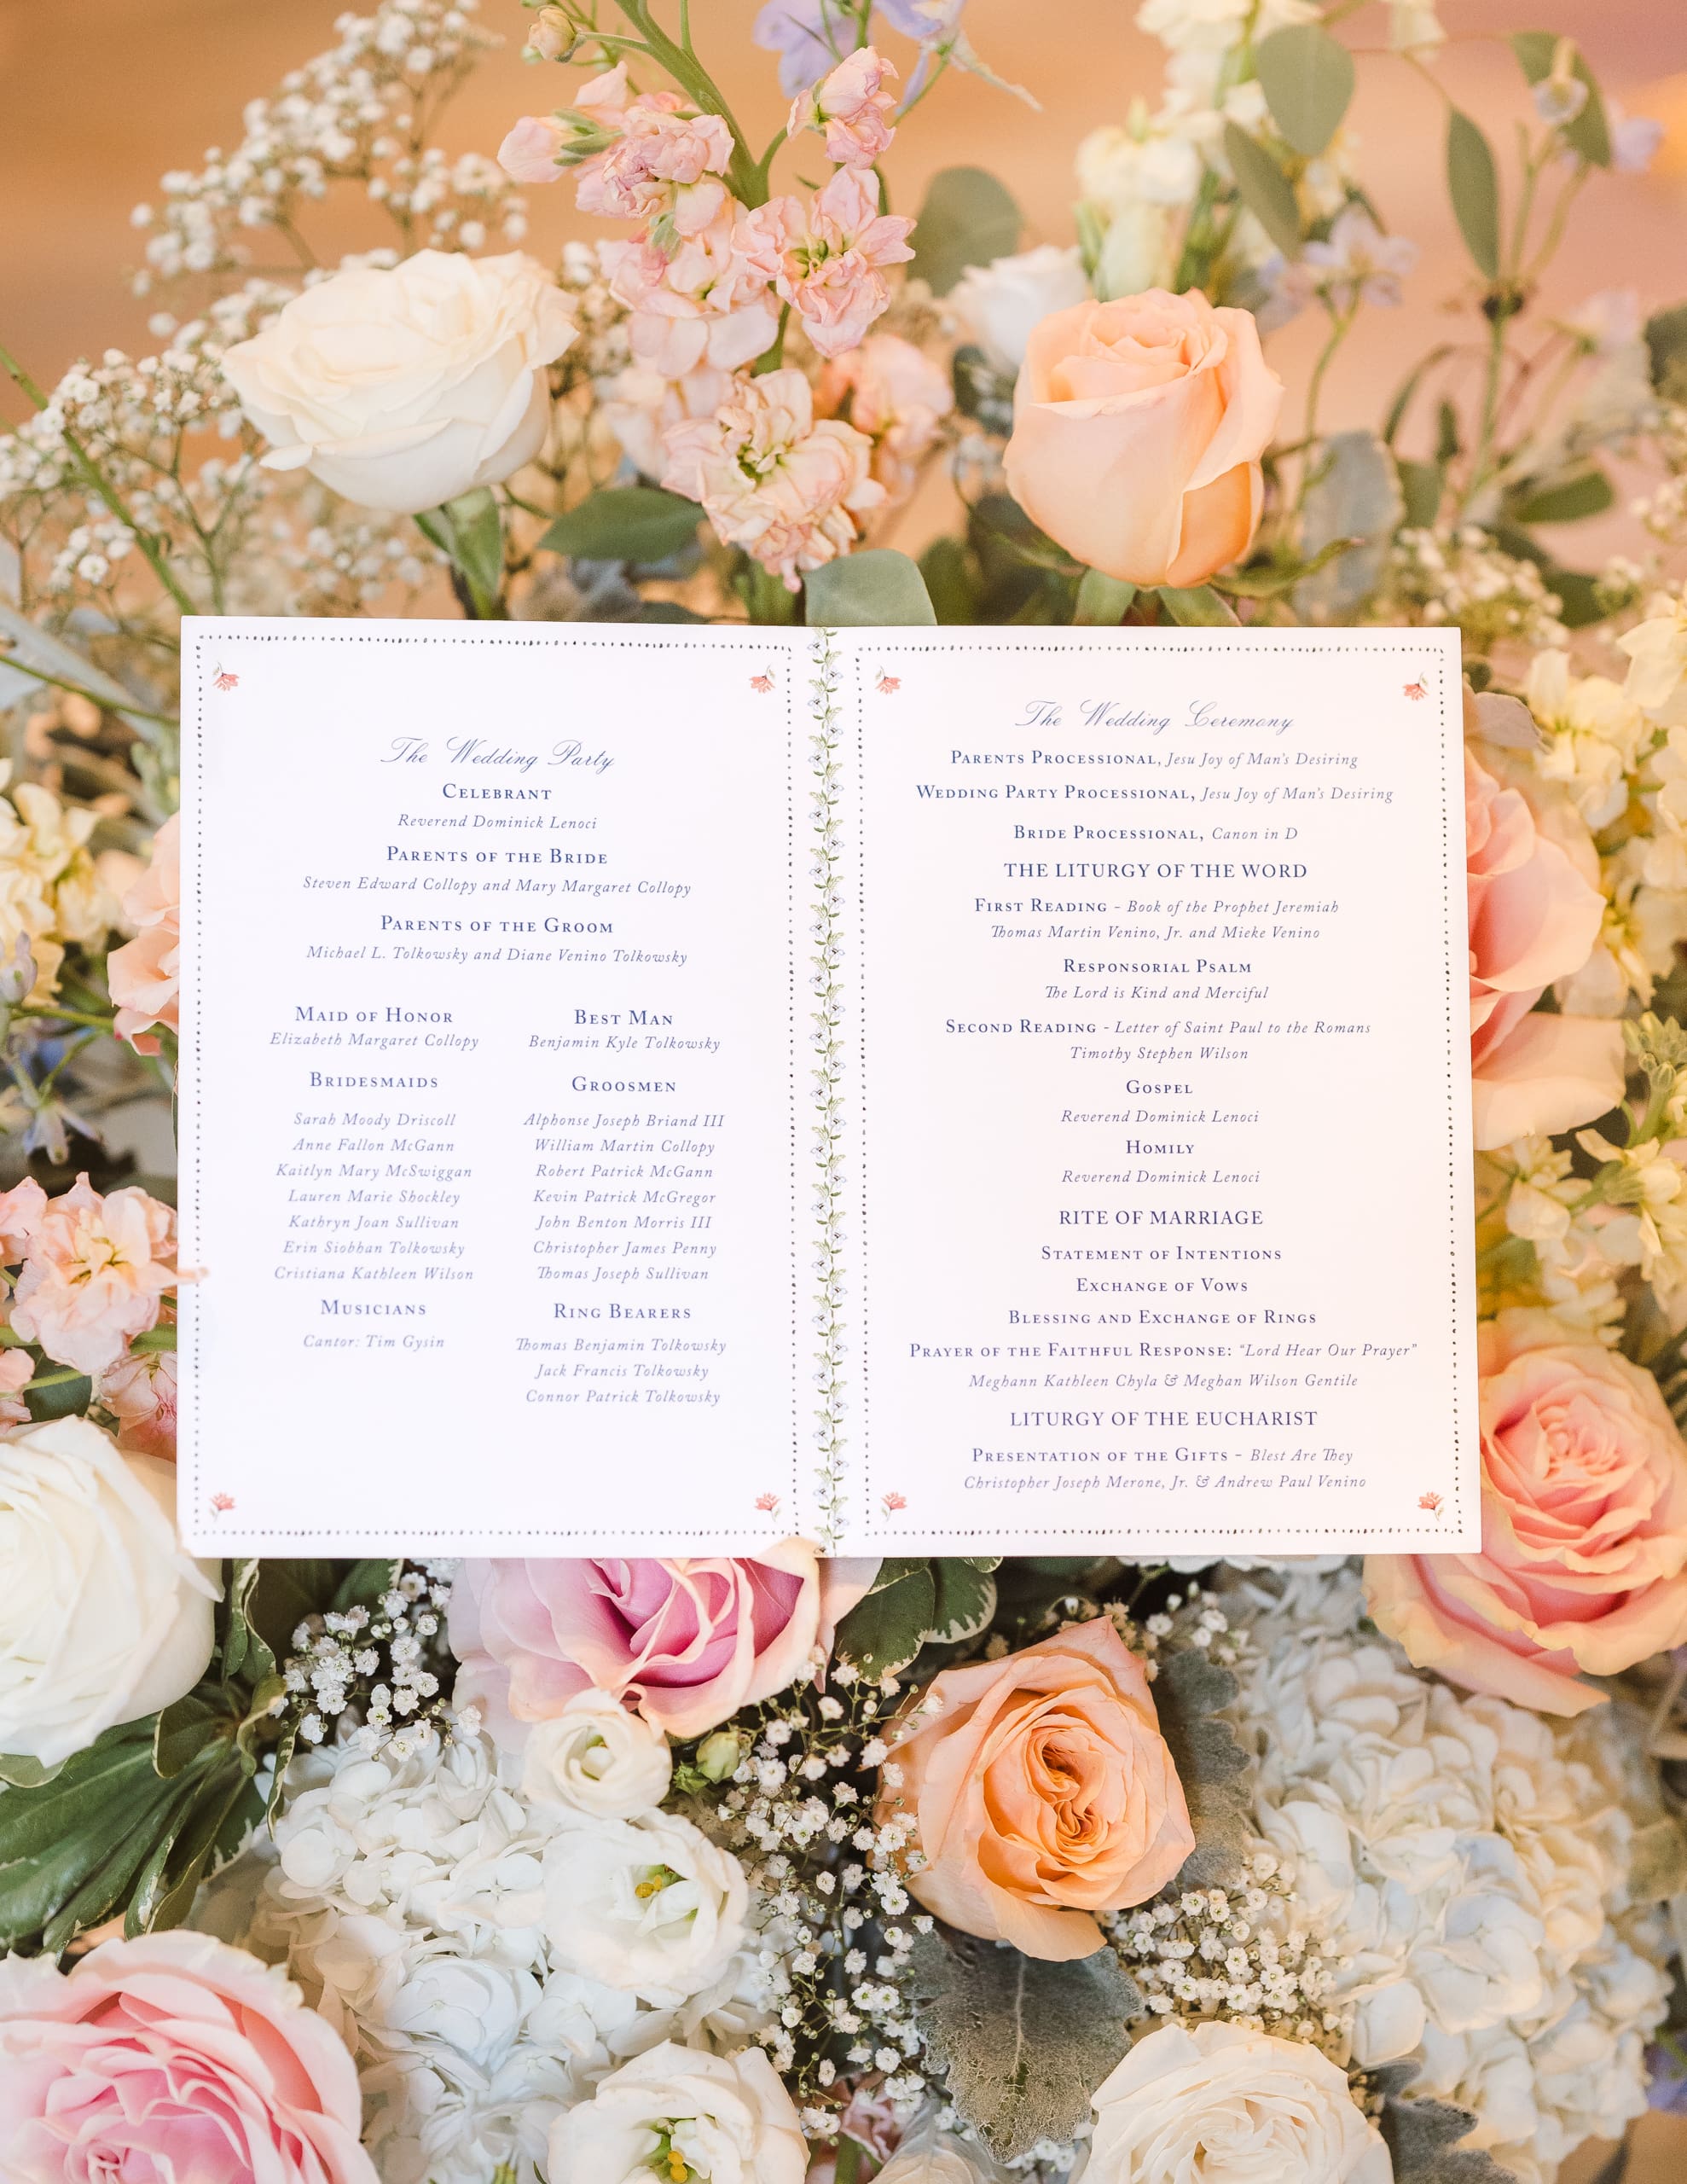 The Wedding Party
CELEBRANT
Reverend Dominick Lenoci
PARENTS OF THE BRIDE
Steven Edward Collopy and Mary Margaret Collopy
PARENTS OF THE GROOM
Michael L. Tolkowsky and Diane Venino Tolkowsky
MAID OF HONOR
Elizabeth Margaret Collopy
BRIDESMAIDS
Sarah Moody Driscoll
Anne Fallon McGann
Kaitlyn Mary McSwiggan
Lauren Marie Shockley
Kathryn Joan Sullivan
Erin Siobhan Tolkowsky
Cristiana Kathleen Wilson
MUSICIANS
Cantor: Tim Gysin
BEST MAN
Benjamin Kyle Tolkowsky
GROOSMEN
Alphonse Joseph Briand III
William Martin Collopy
Robert Patrick McGann
Kevin Patrick McGregor
John Benton Morris III
Christopher James Penny
Thomas Joseph Sullivan
RING BEARERS
Thomas Benjamin Tolkowsky
Jack Francis Tolkowsky
Connor Patrick Tolkowsky
The Wedding Ceremony
PARENTS PROCESSIONAL, Jesu Joy of Man's Desiring
WEDDING PARTY PROCESSIONAL, Jesu Joy of Man's Desiring
BRIDE PROCESSIONAL, Canon in D
THE LITURGY OF THE WORD
FIRST READING - Book of the Prophet Jeremiah
Thomas Martin Venino, Jr. and Mieke Venino
RESPONSORIAL PSALM
The Lord is Kind and Merciful
SECOND READING - Letter of Saint Paul to the Romans
Timothy Stephen Wilson
GOSPEL
Reverend Dominick Lenoci
HOMILY
Reverend Dominick Lenoci
RITE OF MARRIAGE
STATEMENT OF INTENTIONS
EXCHANGE OF VOWS
BLESSING AND EXCHANGE OF RINGS
PRAYER OF THE FAITHFUL RESPONSE: "Lord Hear Our Prayer"
Meghann Kathleen Chyla & Meghan Wilson Gentile
LITURGY OF THE EUCHARIST
PRESENTATION OF THE GIFTS - Blest Are They
Christopher Joseph Merone, Jr. & Andrew Paul Venino